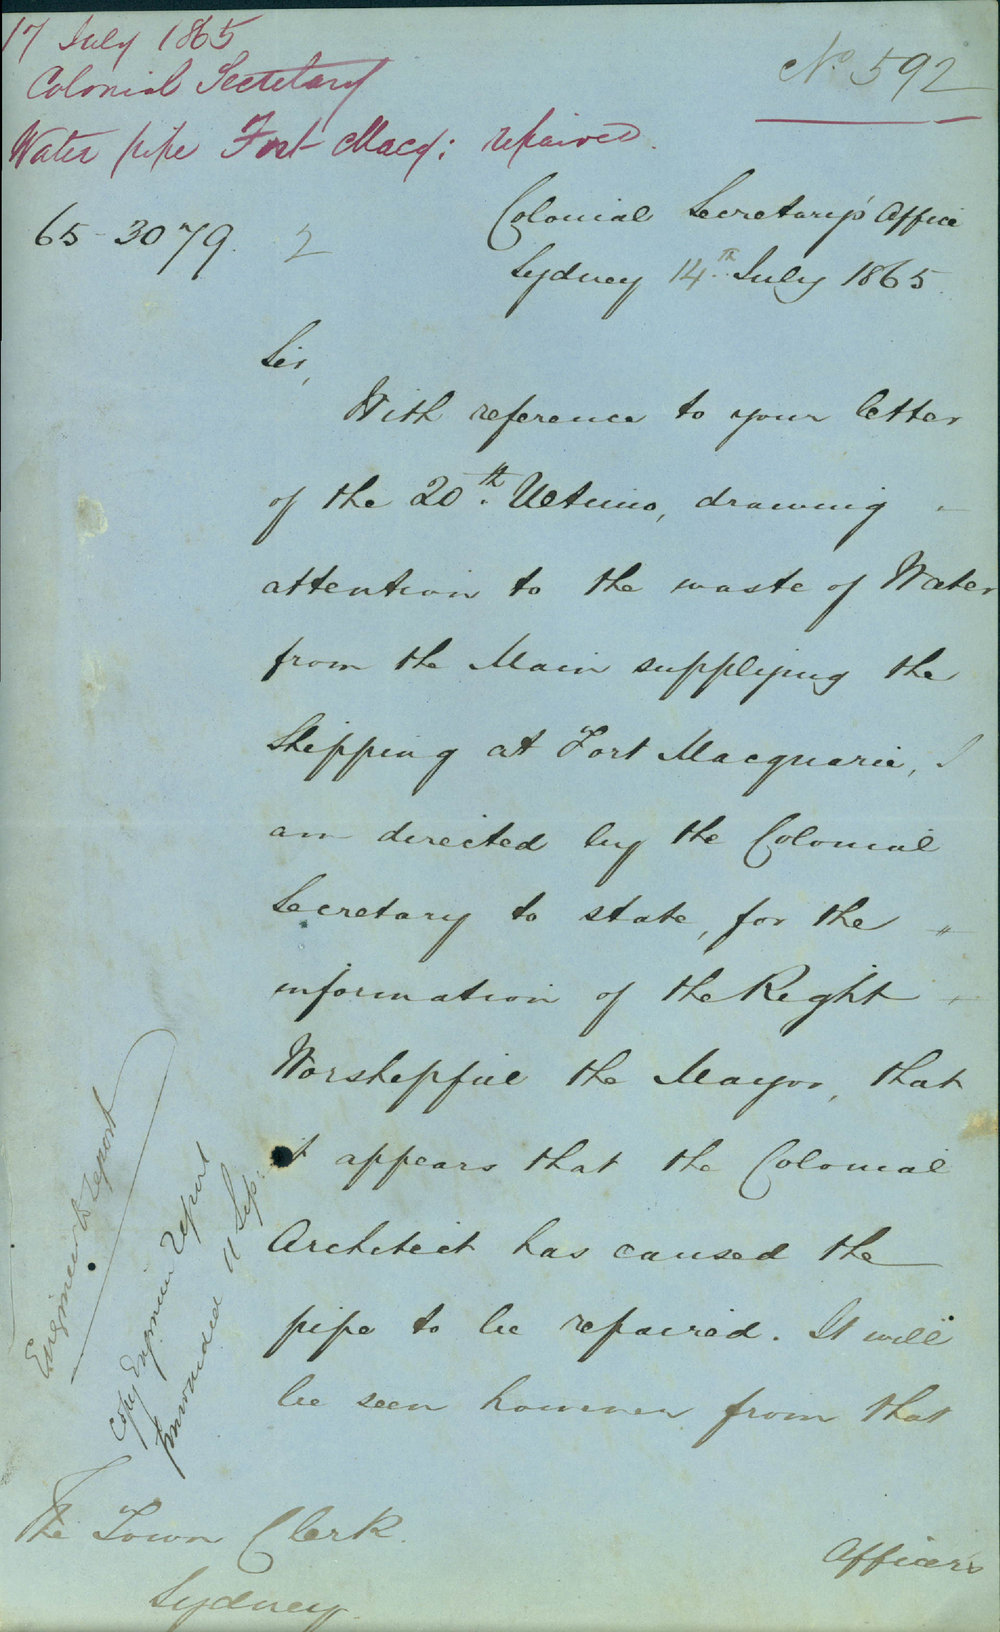 17 July 1865
Colonial Secretary
Water pipe Fort Macq: repaired
No. 592
65-3079. 2
Colonial Secretary's Office
Sydney 14th July 1865.
Sir,
With reference to your letter
of the 20th Ultimo, drawing
attention to the waste of Water
from the Main supplying the
Shipping at Fort Macquarie, I
am directed by the Colonial
Secretary to state, for the "
information of the Right
Worshipful the Mayor, that
it appears that the Colonial
Architect has caused the
pipe to be repaired. It will
be seen however from that
Officer's
Engineer to report
Copy Engineer report
forwarded 11 Sep:
The Town Clerk.
Sydney.